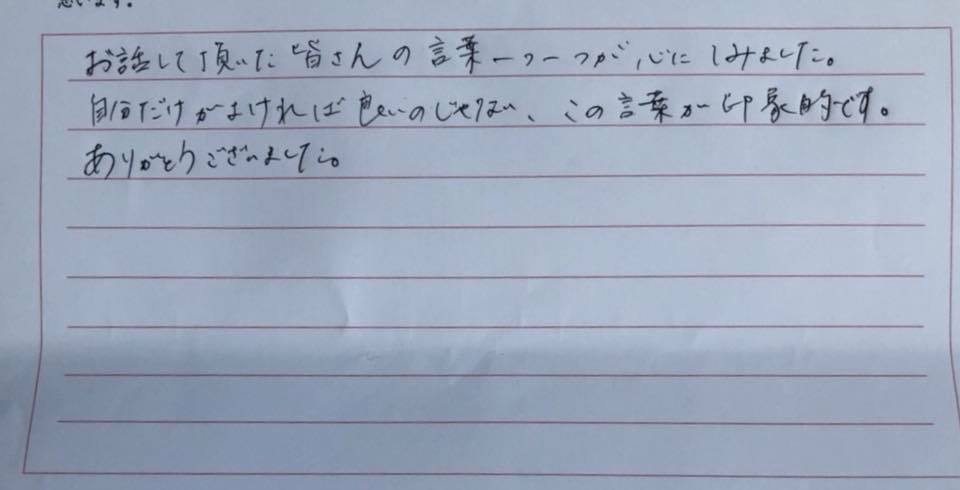 思います。
お話して頂いた皆さんの言葉一つ一つが心にしみました。
自分だけがよければ良いのじゃない、この言葉が印象的です。
ありがとうございました。